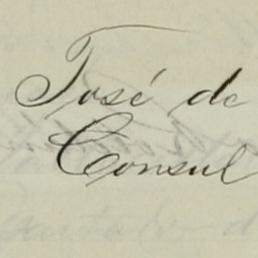 José de
Consul